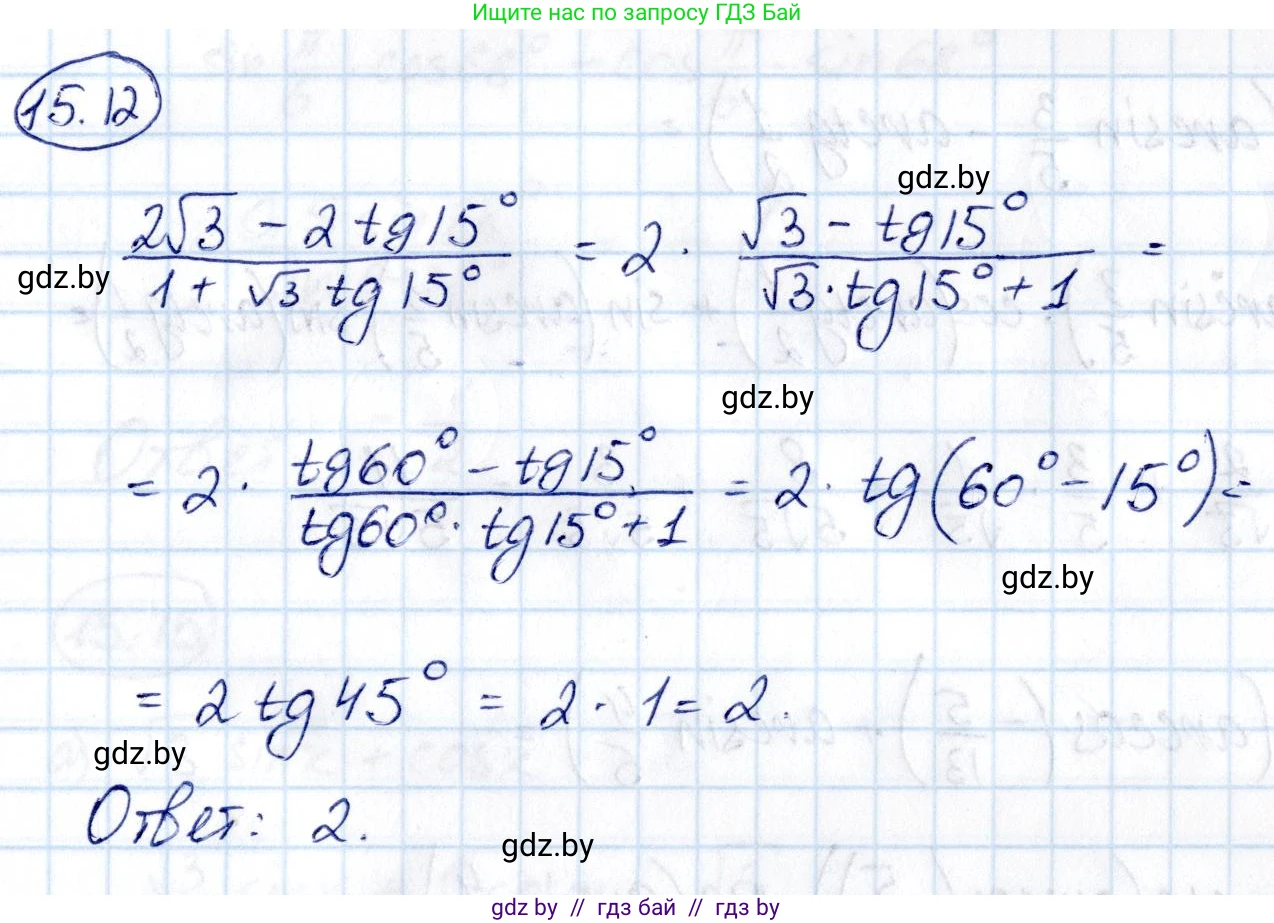 Ищите нас по запросу ГДЗ Бай
15.12
gdz.by
(2√3 - 2 tg 15°)/(1 + √3 tg 15°) = 2 · (√3 - tg 15°)/(√3 · tg 15° + 1) =
gdz.by
gdz.by
= 2 · (tg 60° - tg 15°)/(tg 60° · tg 15° + 1) = 2 · tg (60° - 15°) =
gdz.by
= 2 tg 45° = 2 · 1 = 2.
gdz.by
Ответ: 2.
gdz.by
gdz by // гдз бай // gdz by